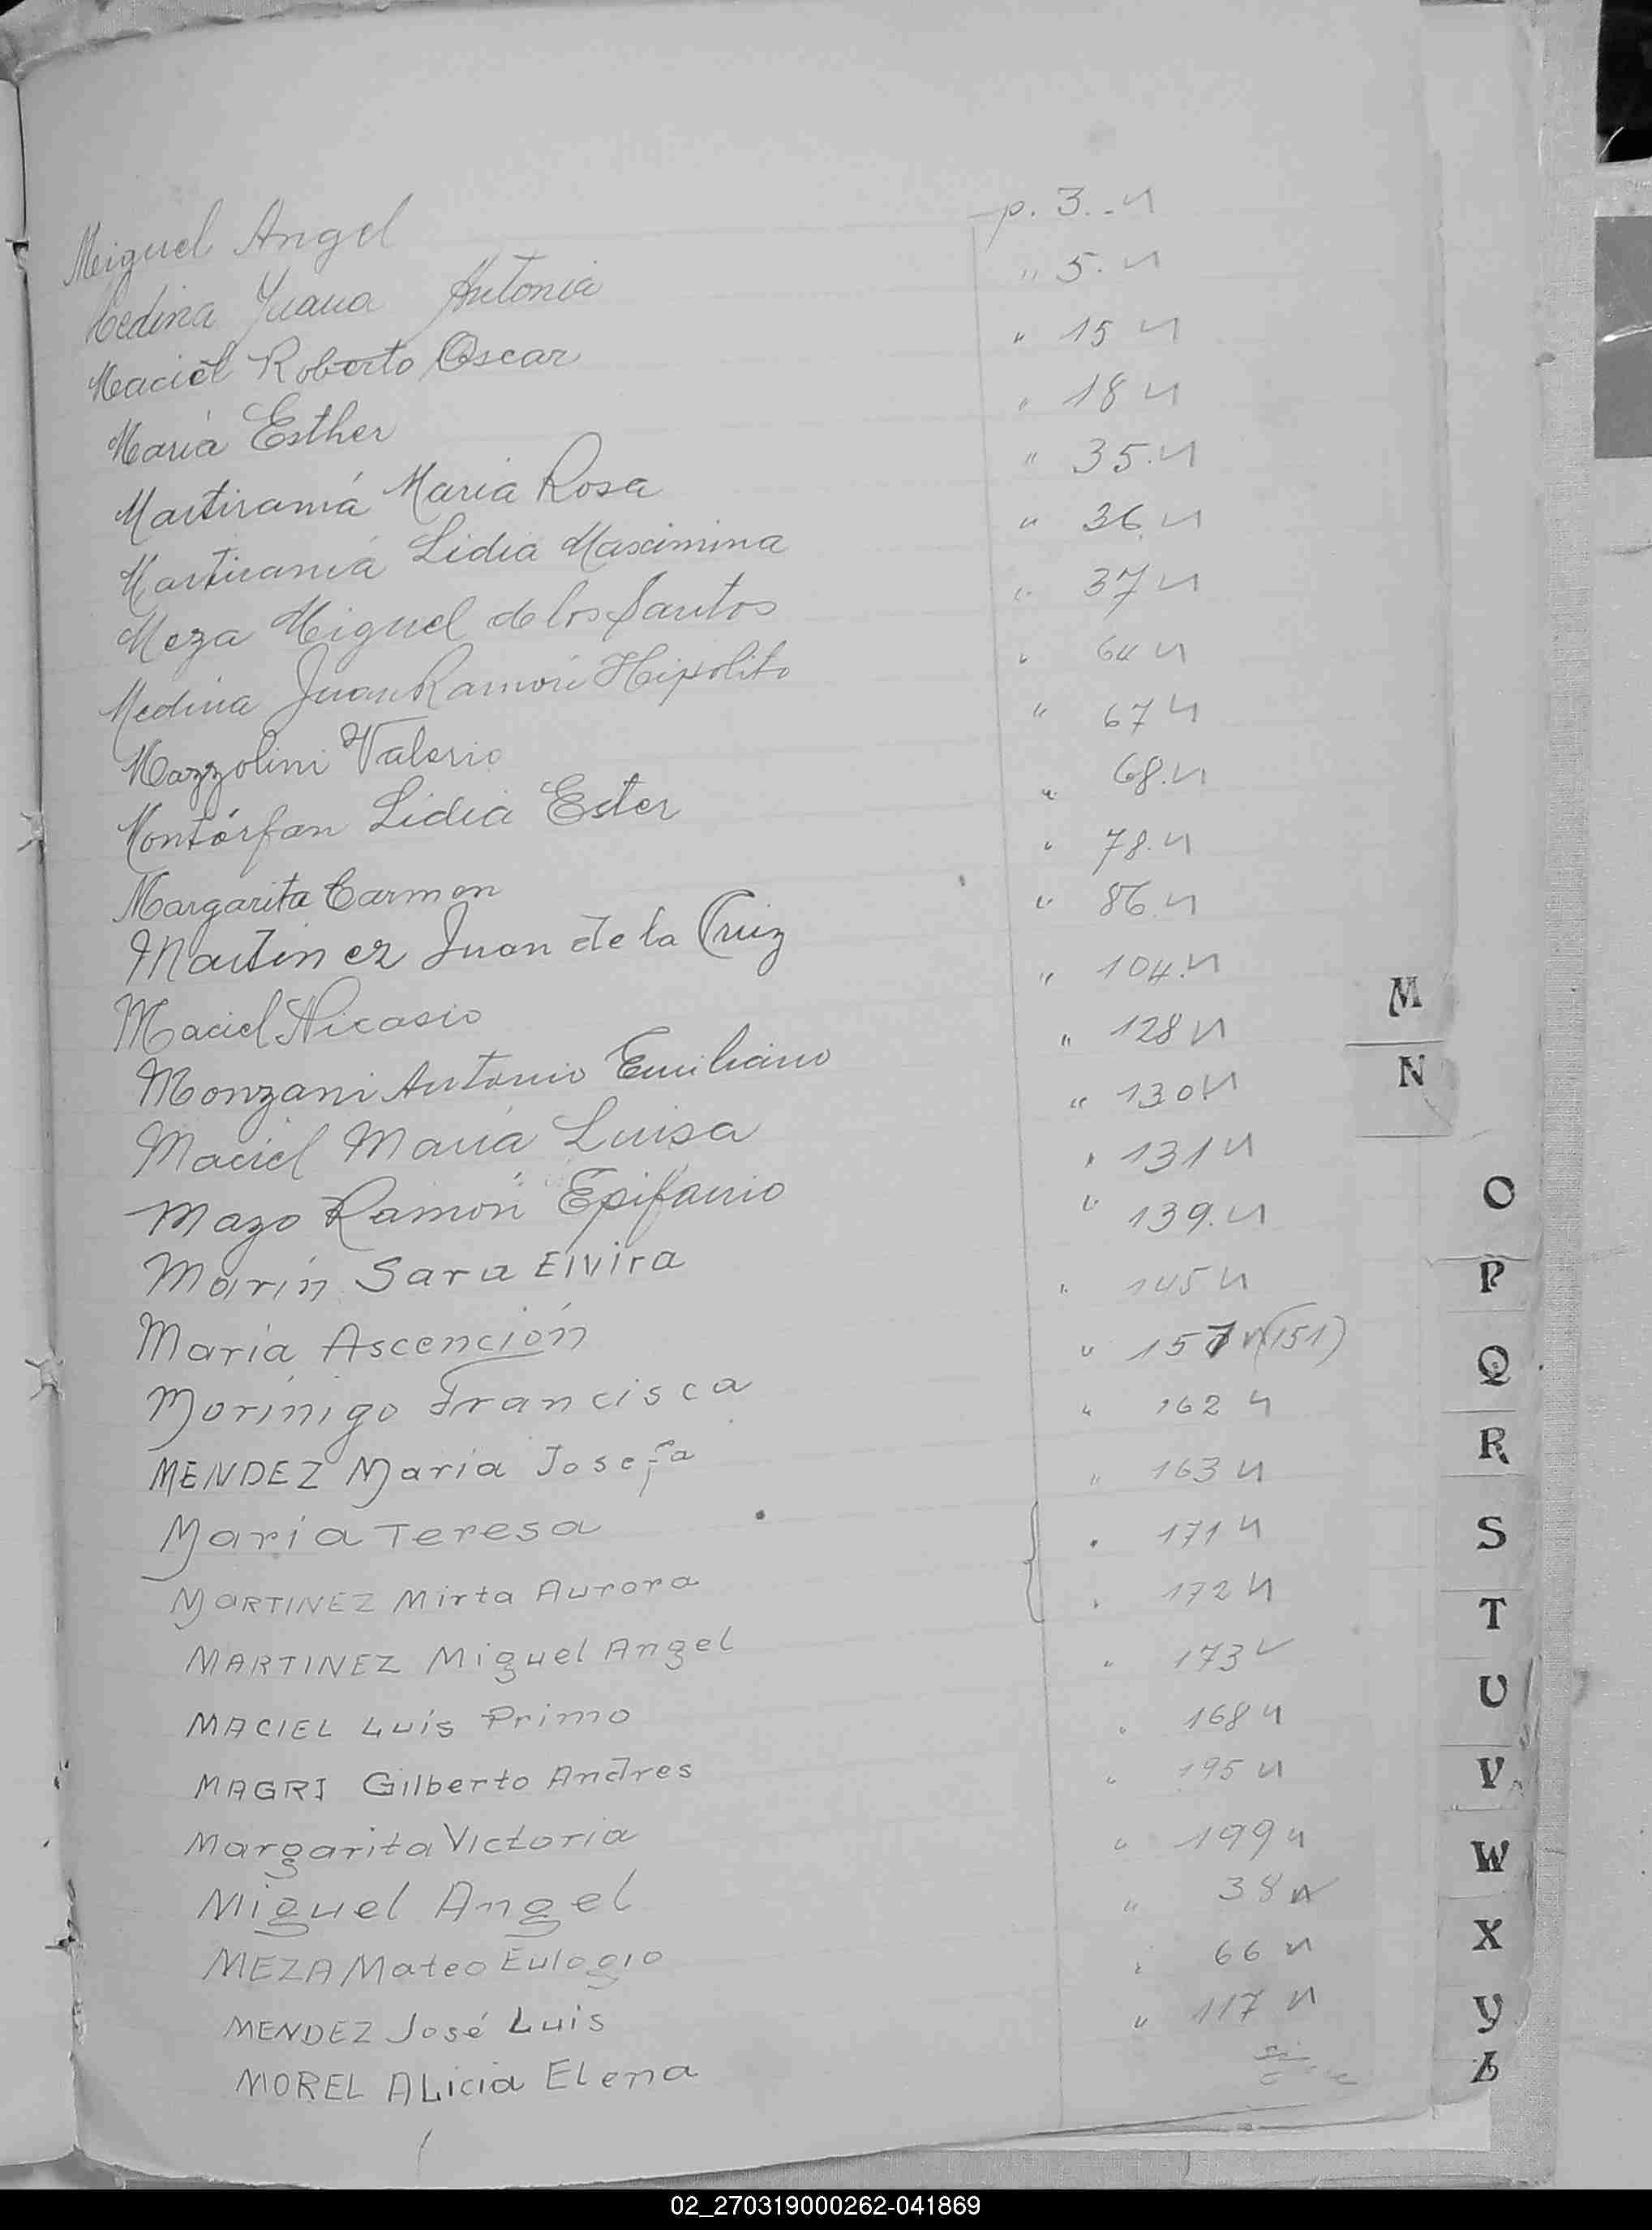 Miguel Angel p. 3.- N
Medina Juana Antonia " 5. N
Maciel Roberto Oscar " 15 N
Maria Esther " 18 N
Martiramá Maria Rosa " 35. N
Martiramá Lidia Maximina " 36 N
Meza Miguel de los Santos " 37 N
Medina Juan Ramón Hipolito " 64 N
Mazzolini Valerio " 67 N
Montórfan Lidia Ester " 68. N
Margarita Carmen " 78. N
Martinez Juan de la Cruz " 86. N
Maciel Nicasio " 104. N
Monzani Antonio Emiliano " 128 N
Maciel Maria Luisa " 130 N
Mazo Ramón Epifanio " 131 N
Marín Sara Elvira " 139. N
María Ascención " 145 N
Morínigo Francisca " 157 N (151)
MENDEZ María Josefa " 162 N
María Teresa " 163 N
MARTINEZ Mirta Aurora " 171 N
MARTINEZ Miguel Angel " 172 N
MACIEL Luis Primo " 173
MAGRI Gilberto Andres " 168 N
Margarita Victoria " 195 N
Miguel Angel " 199 N
MEZA Mateo Eulogio " 38 N
MENDEZ José Luis " 66 N
MOREL ALicia Elena " 117 N
M
N
O
P
Q
R
S
T
U
V
W
X
Y
Z
02_270319000262-041869